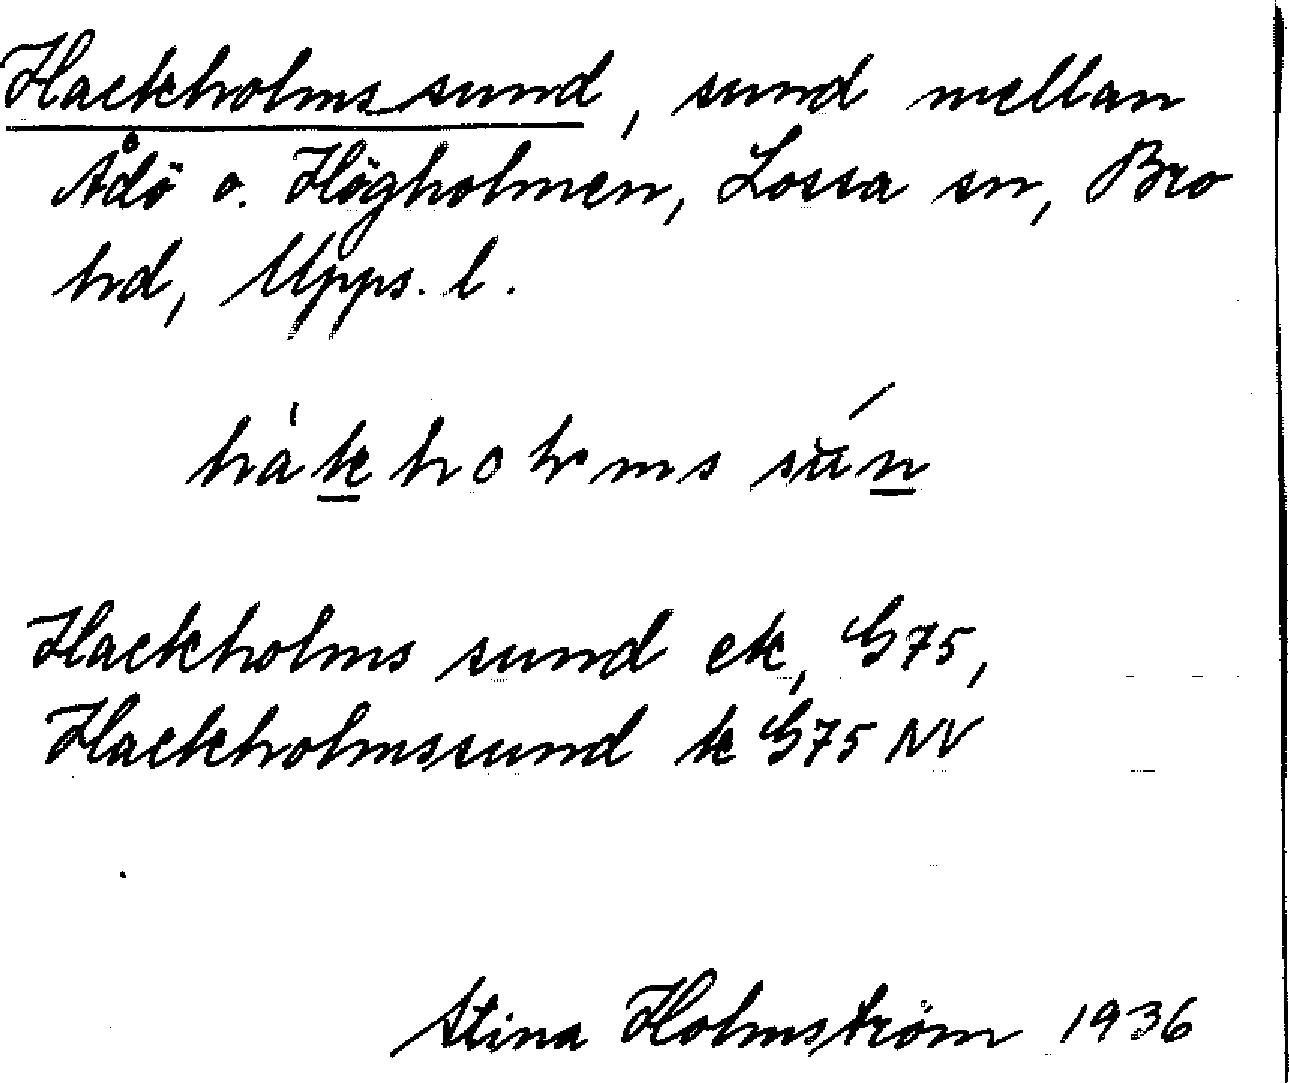 Hackholmssund, sund mellan
Ådö o. Högholmen, Lossa sn, Bro
hd, Upps. l.
Hackholms sund ek, G75,
Hackholmssund k G75 NV
Stina Holmström 1936